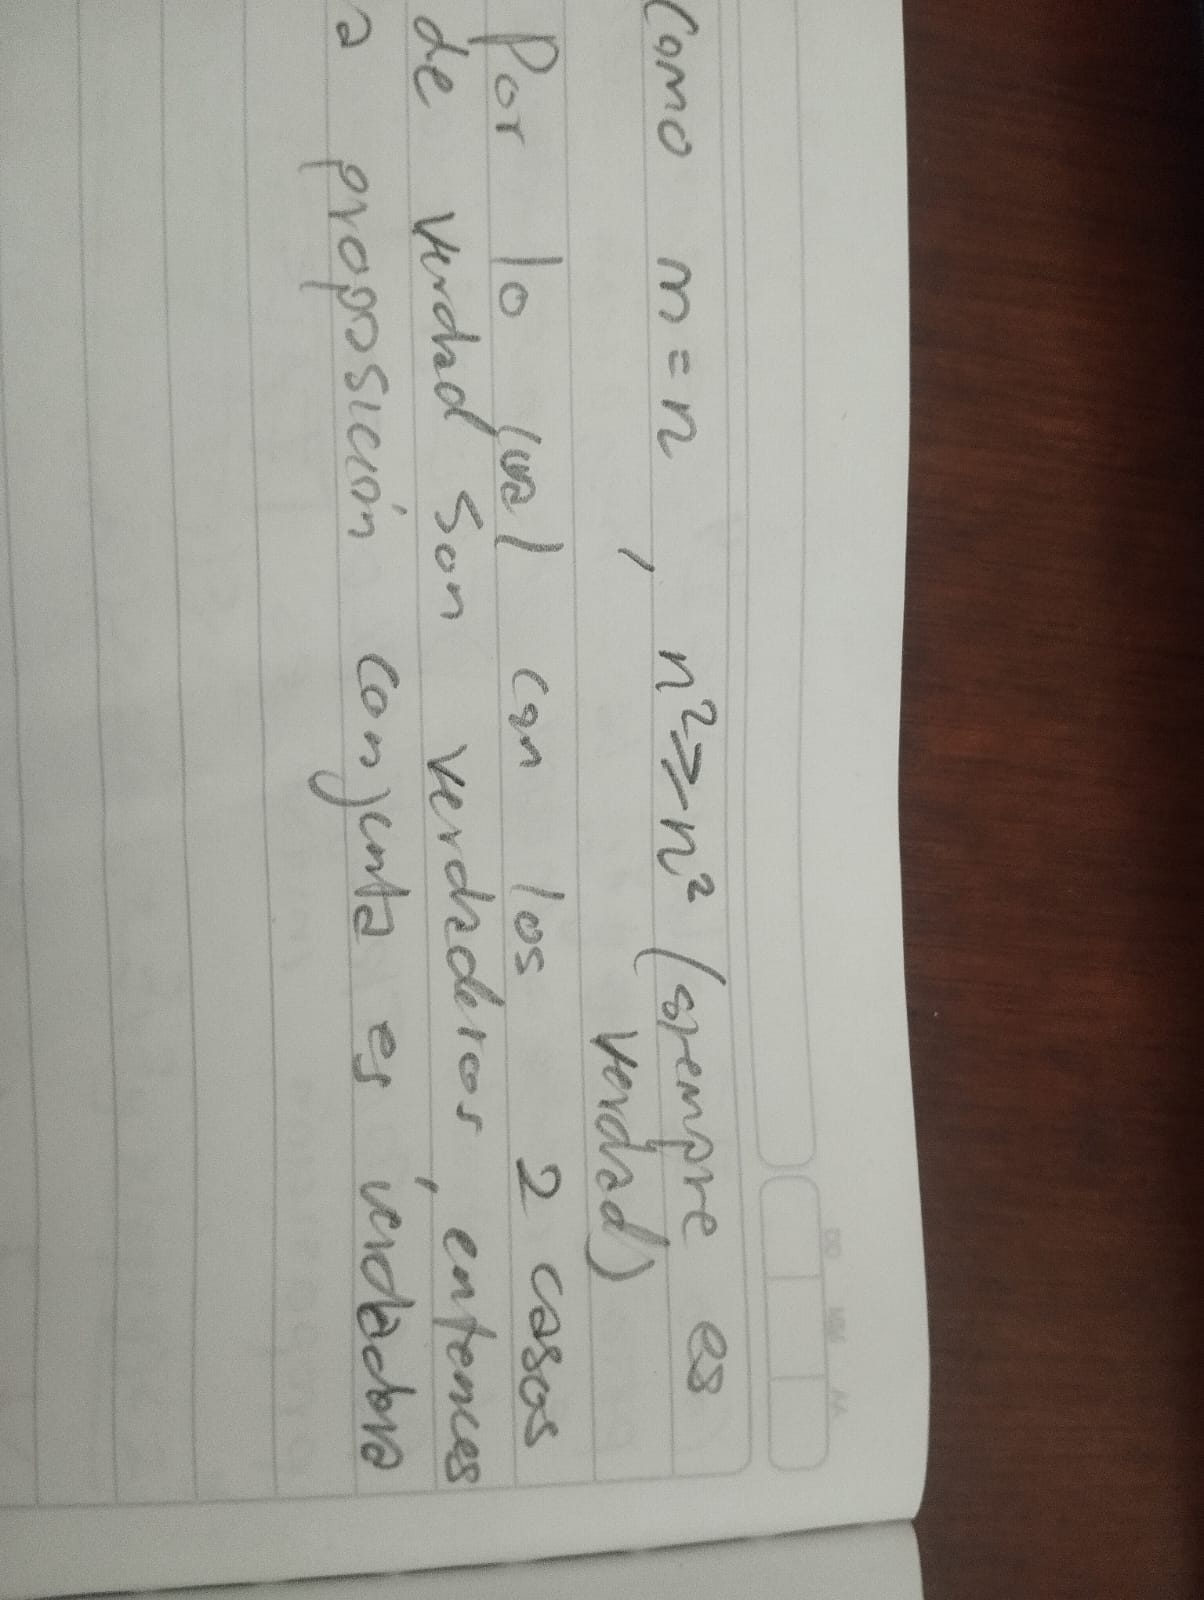 Como m = n , n² ≥ n² (siempre es
verdad)
Por lo cual con los 2 casos
de verdad son verdaderos, entonces
a proposición conjunta es verdadera